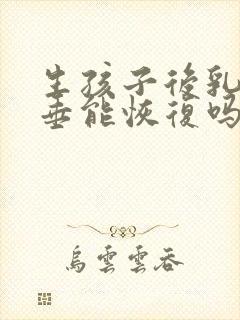 生孩子後乳
垂能恢復吗
烏雲雲吞